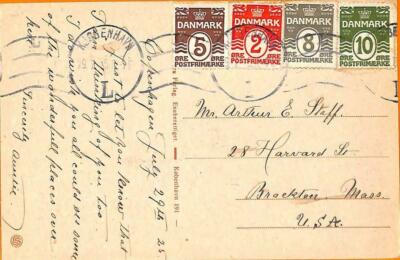 DANMARK
5
ØRE ØRE
POSTFRIMÆRKE
DANMARK
2
ØRE ØRE
POSTFRIMÆRKE
DANMARK
8
ØRE ØRE
POSTFRIMÆRKE
DANMARK
10
ØRE ØRE
POSTFRIMÆRKE
KØBENHAVN
L
Copenhagen July 29th 25
Just to let you know that
I am thinking of you too.
I do wish you all could see some
of the wonderful places over
here
Sincerely
Annie.
Forlag Eneberettiget København 191
Mr. Arthur E. Steff.
28 Harvard St
Brockton Mass.
U.S.A.